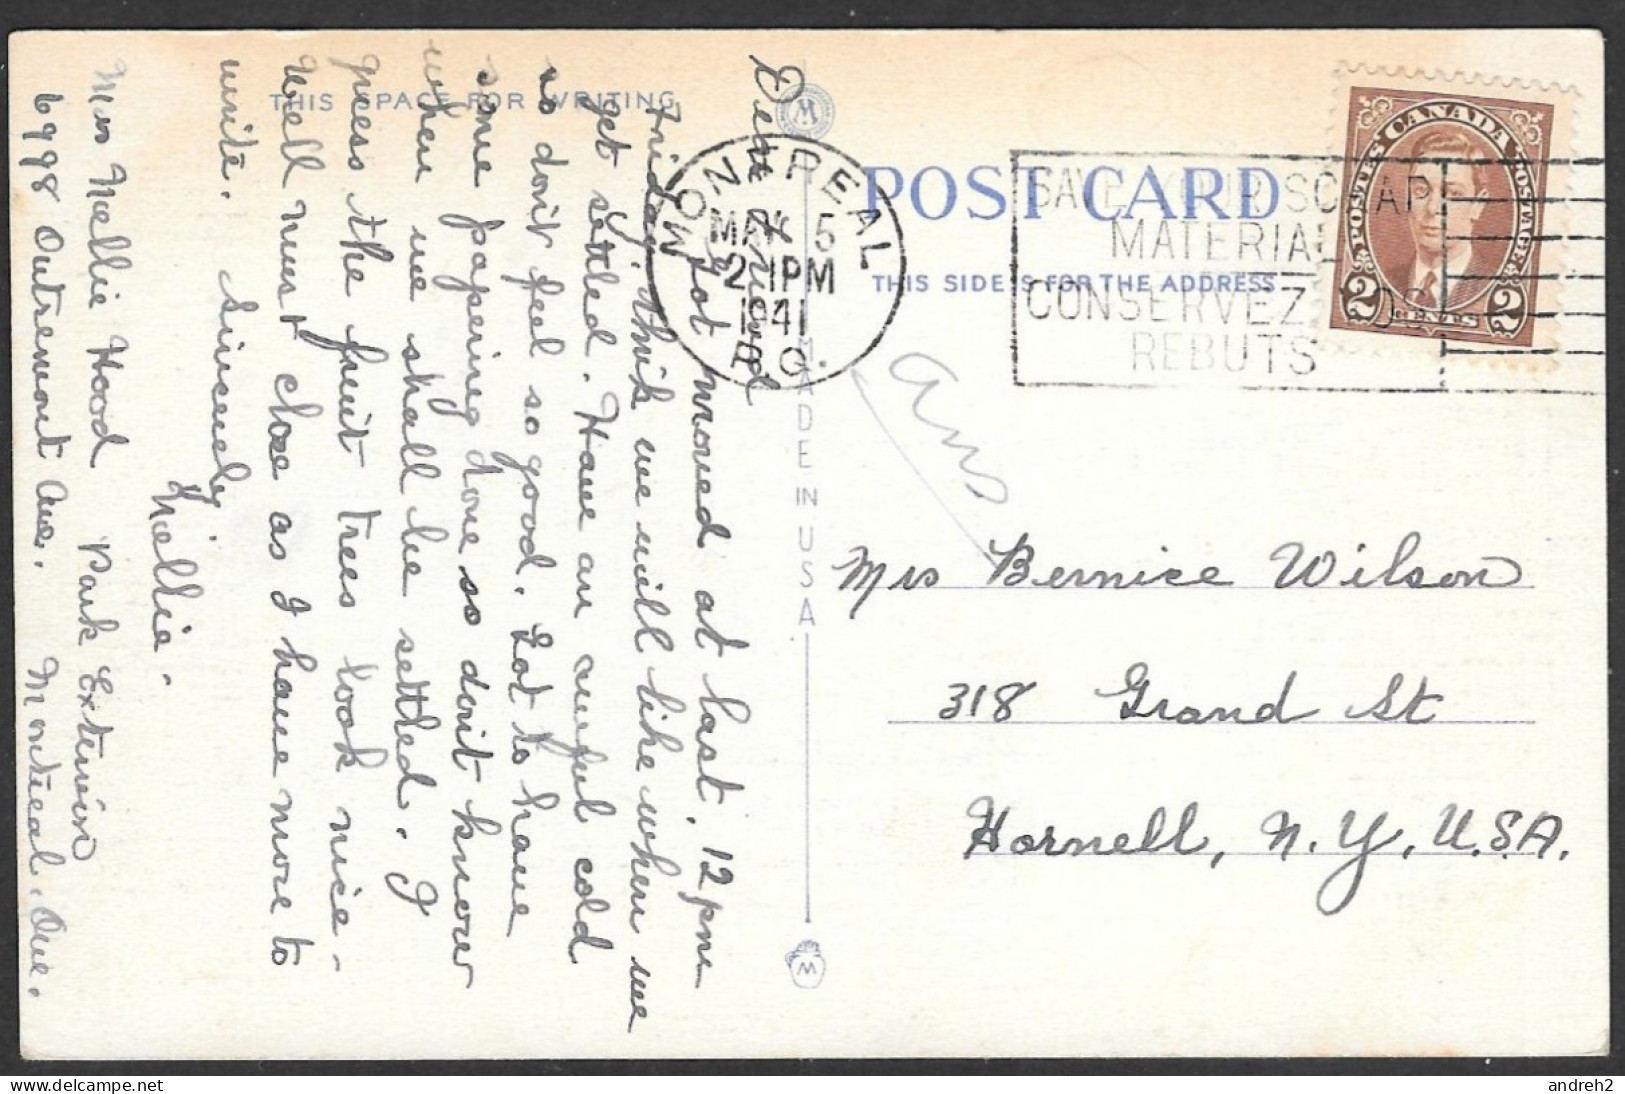 THIS SPACE FOR WRITING
Dear Friend
We got moved at last. 12 pm
Friday. think we will like when we
get settled. Have an awful cold
so don't feel so good. Lot to have
some papering done so don't know
when we shall be settled. I
guess the fruit trees look nice-
Well must close as I have more to
write. Sincerely
Nellie.
Mrs Nellie Hood Park Extension
6998 Outremont Ave. Montreal. Que.
MADE IN USA
POST CARD
THIS SIDE IS FOR THE ADDRESS
MONTREAL
MAY 5
2 1PM
1941
P.Q.
SAVE YOUR SCRAP
MATERIAL
CONSERVEZ VOS
REBUTS
CANADA
POSTES POSTAGE
2 CENTS 2
Ans
Mrs Bernice Wilson
318 Grand St
Hornell, N.Y, U.S.A.
andreh2